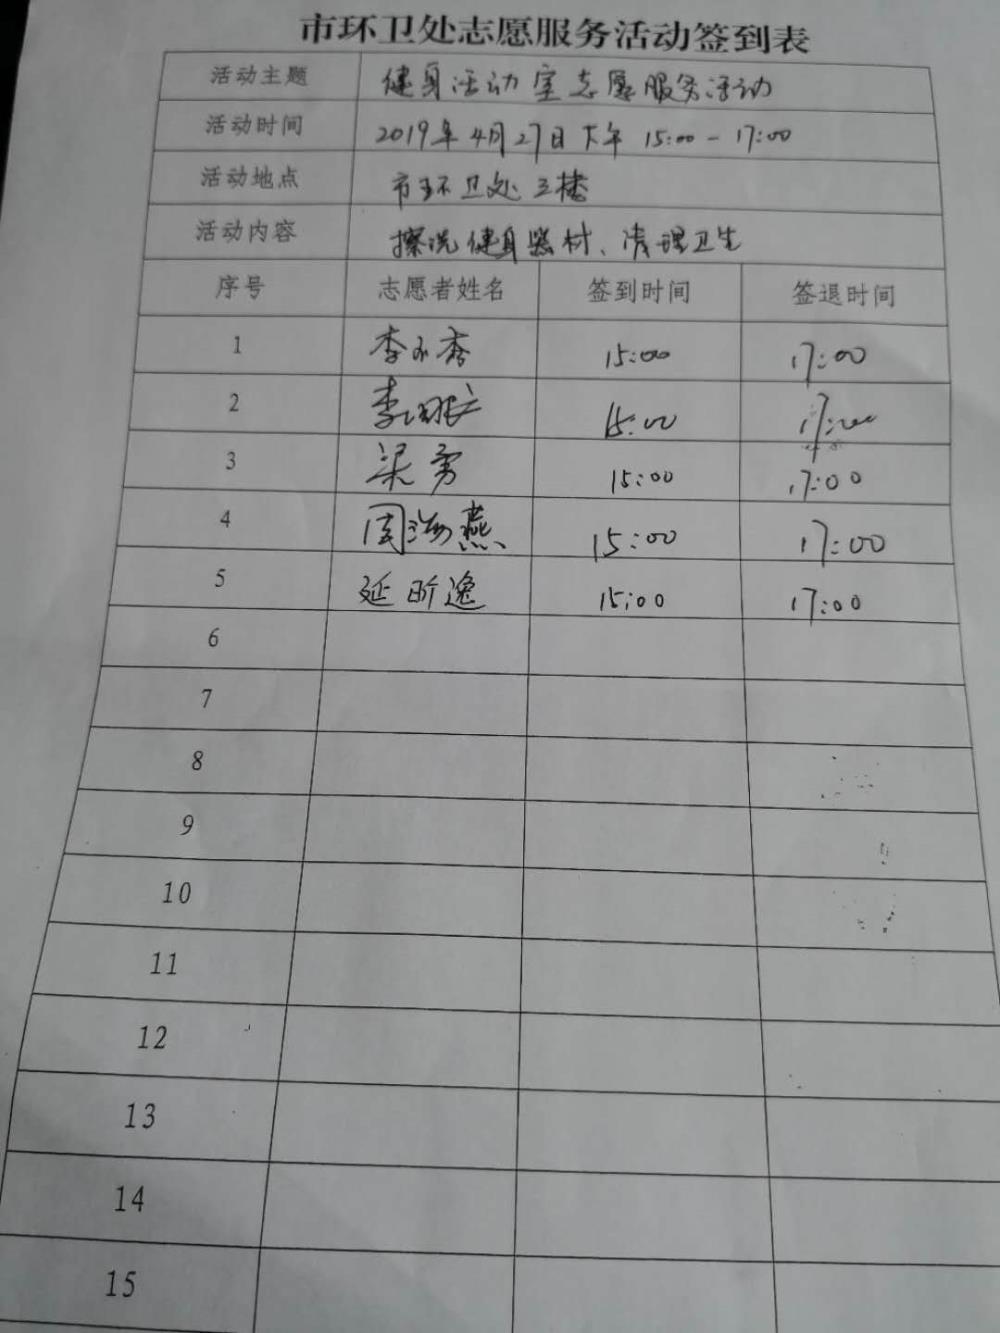 市环卫处志愿服务活动签到表
活动主题 健身活动室志愿服务活动
活动时间 2019年4月27日下午 15:00-17:00
活动地点 市环卫处三楼
活动内容 擦洗健身器材、清理卫生
序号 志愿者姓名 签到时间 签退时间
1 李小秀 15:00 17:00
2 李 15:00 17:00
3 梁勇 15:00 17:00
4 周海燕 15:00 17:00
5 延昕逸 15:00 17:00
6
7
8
9
10
11
12
13
14
15